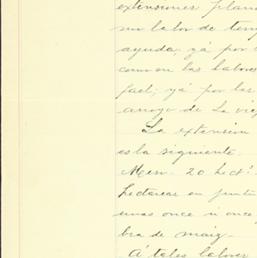 extensiones plan
su labor de tem
ayuda, yá por
como en las labores
fael; yá por las
arroyo de La vie
La extensión
es la siguiente.
20
hectareas en junt
unas once ú once
bra de maiz.
A tales labores